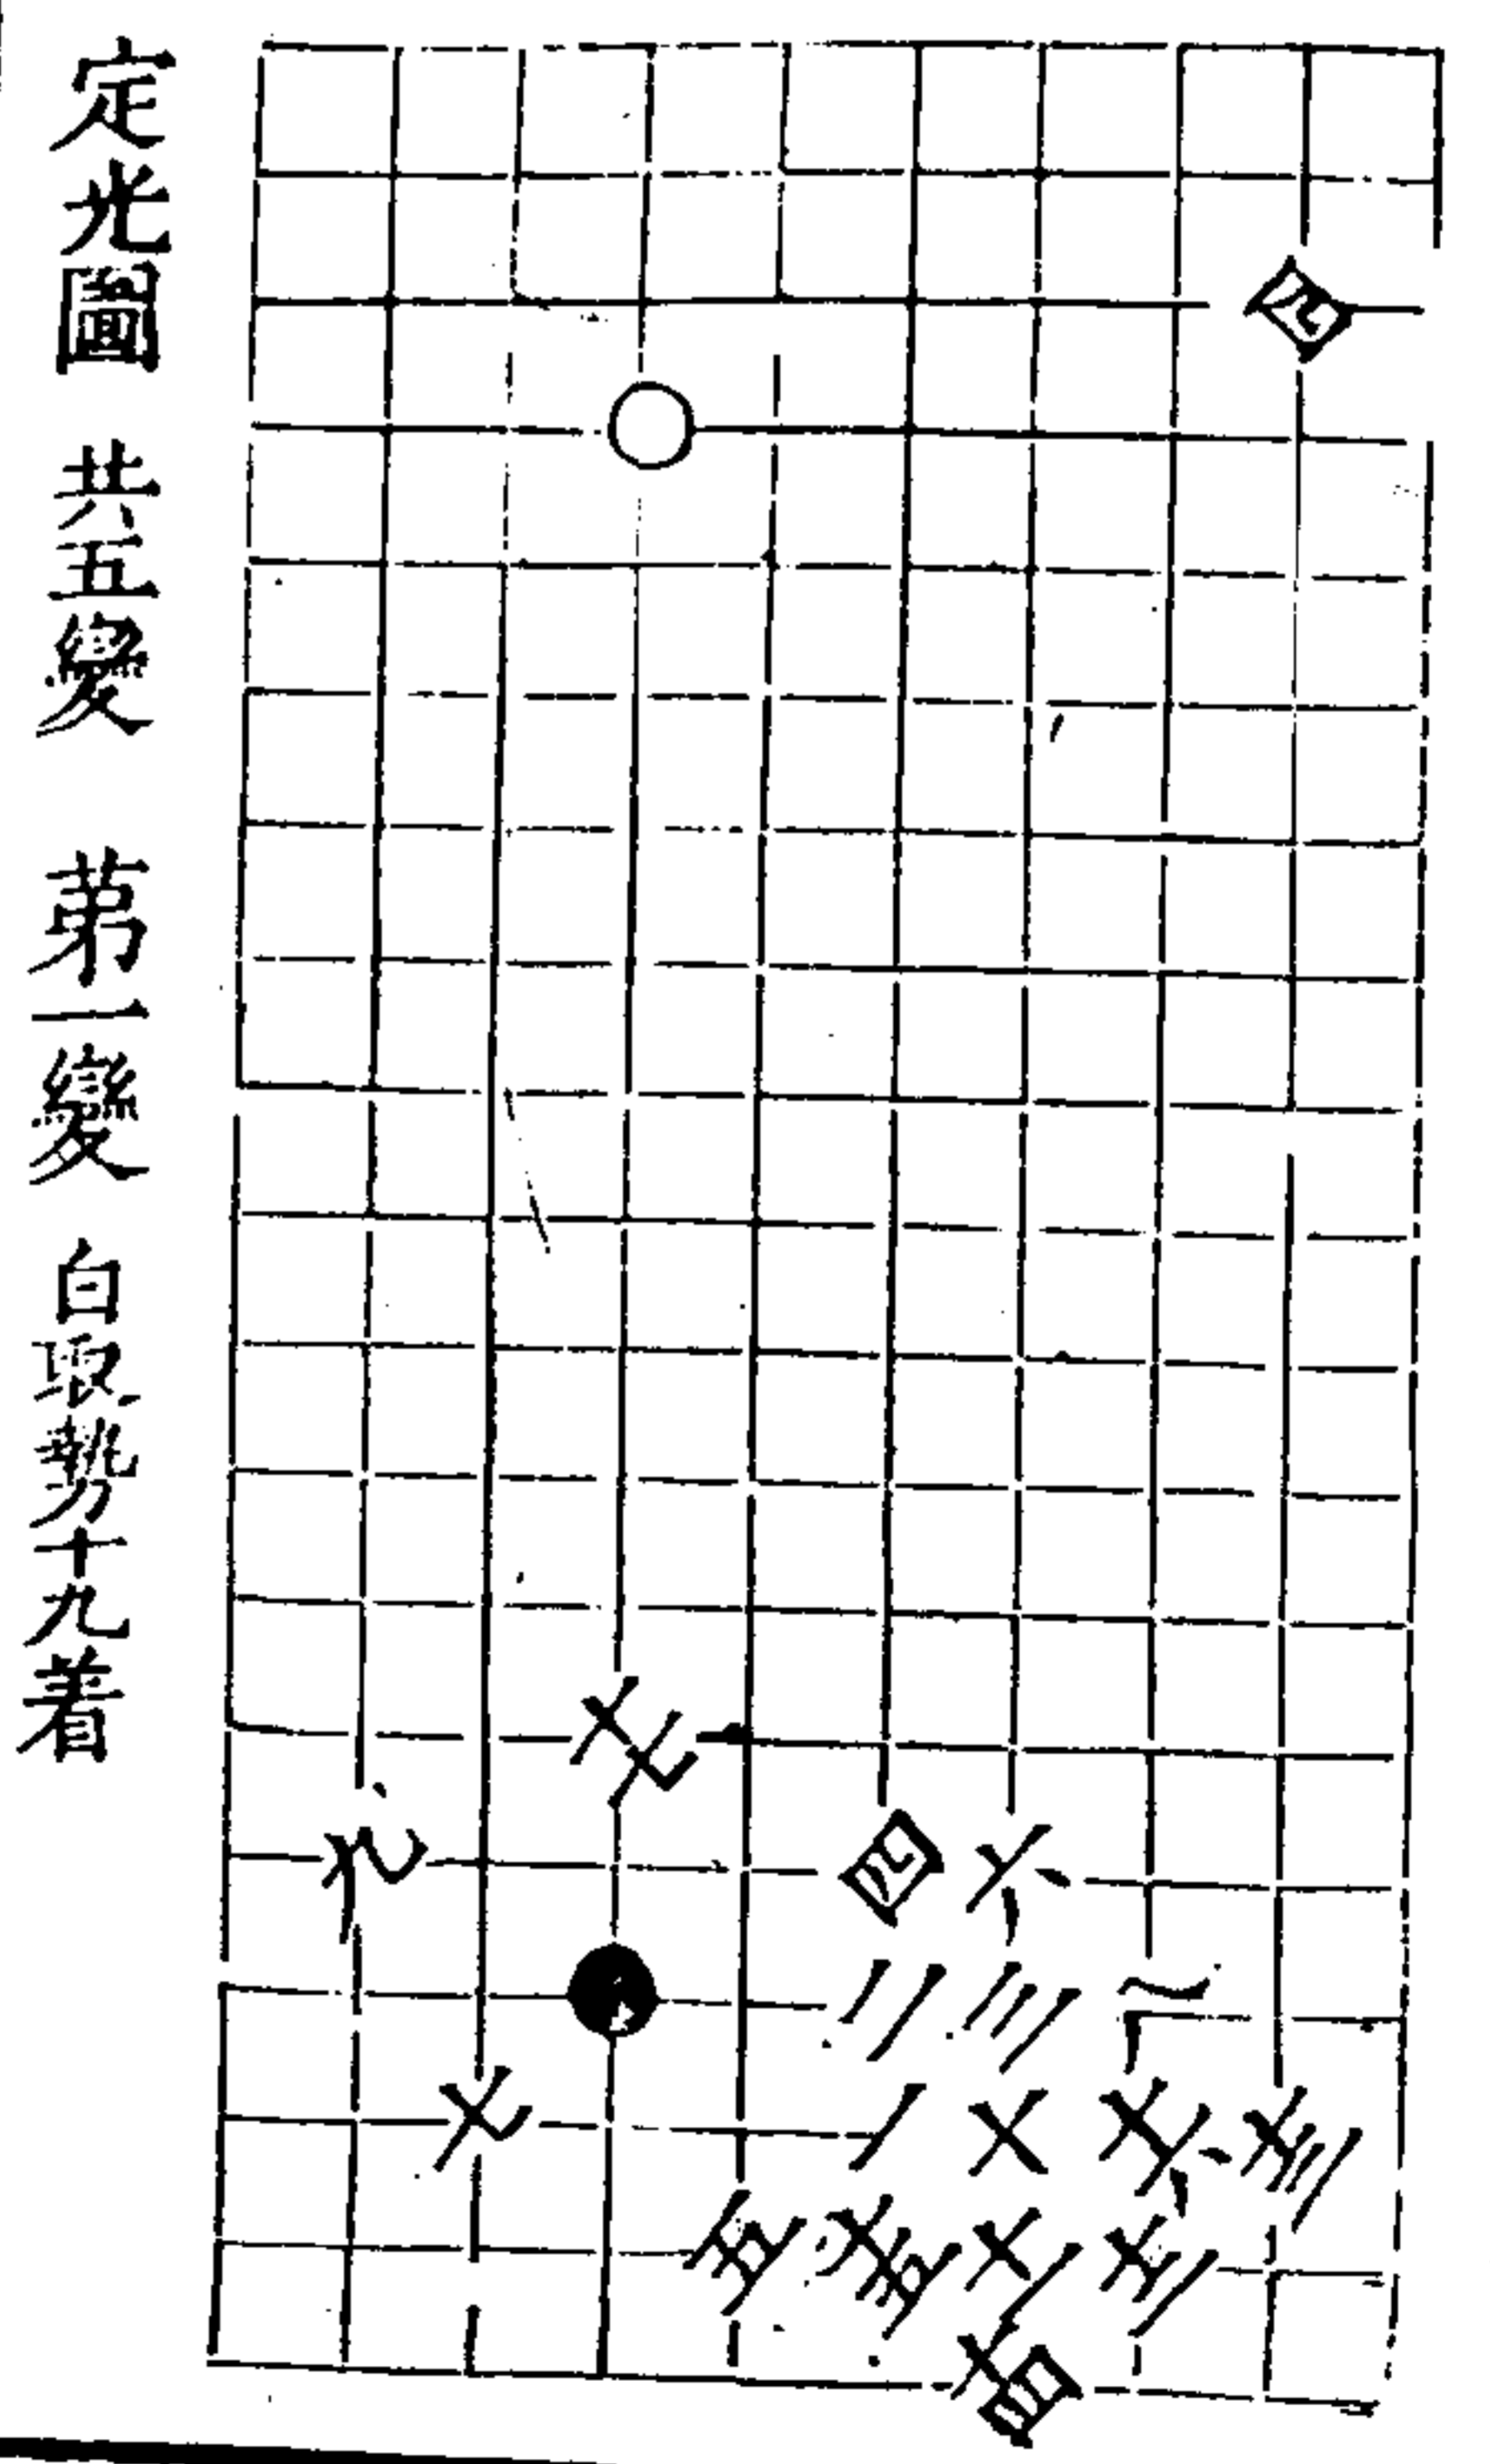 定光圖 共五變 第一變 白取勢十九着
四
十七
九 四 六
二 三 八
七 一 十 十六 十三
五 十五 十一 十二
十四